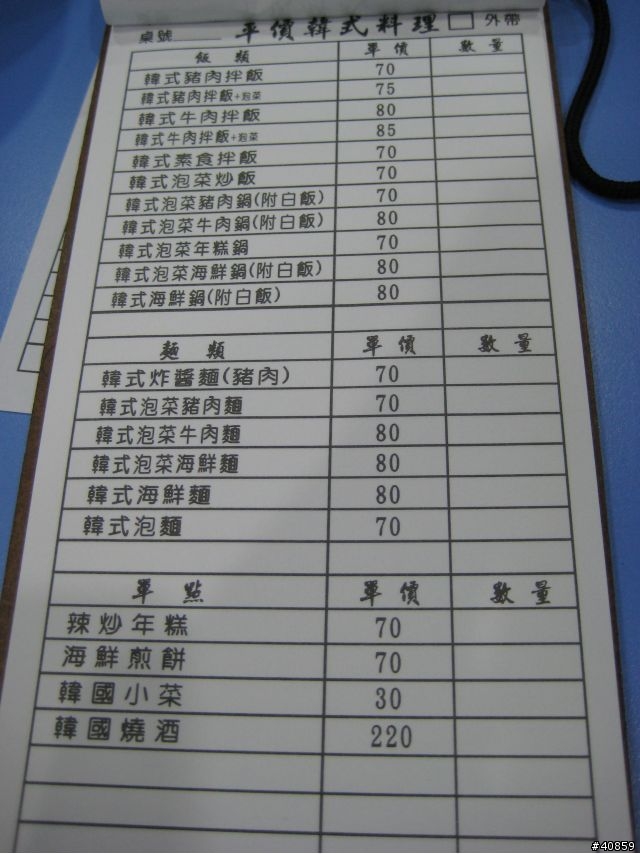 桌號 平價韓式料理 外帶
飯 類 單 價 數 量
韓式豬肉拌飯 70
韓式豬肉拌飯+泡菜 75
韓式牛肉拌飯 80
韓式牛肉拌飯+泡菜 85
韓式素食拌飯 70
韓式泡菜炒飯 70
韓式泡菜豬肉鍋(附白飯) 70
韓式泡菜牛肉鍋(附白飯) 80
韓式泡菜年糕鍋 70
韓式泡菜海鮮鍋(附白飯) 80
韓式海鮮鍋(附白飯) 80
麵 類 單 價 數 量
韓式炸醬麵(豬肉) 70
韓式泡菜豬肉麵 70
韓式泡菜牛肉麵 80
韓式泡菜海鮮麵 80
韓式海鮮麵 80
韓式泡麵 70
單 點 單 價 數 量
辣炒年糕 70
海鮮煎餅 70
韓國小菜 30
韓國燒酒 220
#40859